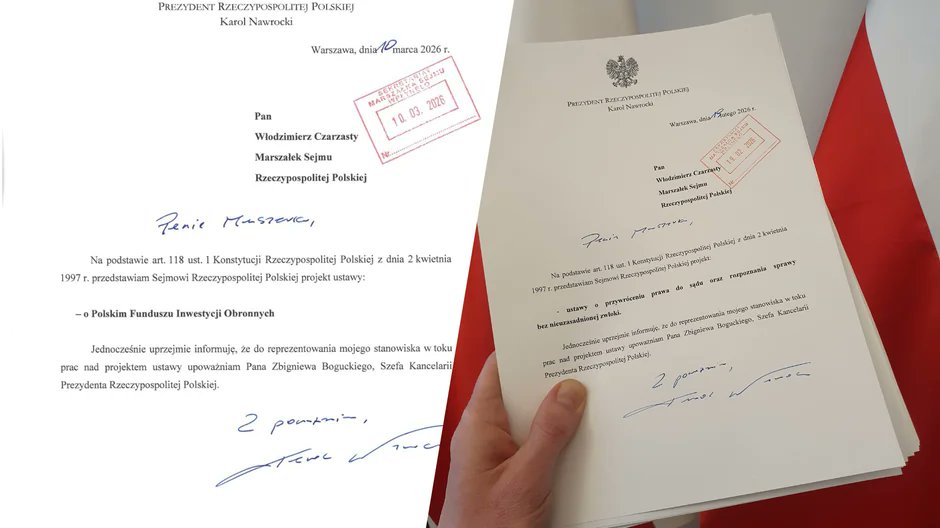 PREZYDENT RZECZYPOSPOLITEJ POLSKIEJ
Karol Nawrocki
Warszawa, dnia 10 marca 2026 r.
SEKRETARIAT
MARSZAŁKA SEJMU
10. 03. 2026
Nr
Pan
Włodzimierz Czarzasty
Marszałek Sejmu
Rzeczypospolitej Polskiej
Panie Marszałku,
Na podstawie art. 118 ust. 1 Konstytucji Rzeczypospolitej Polskiej z dnia 2 kwietnia
1997 r. przedstawiam Sejmowi Rzeczypospolitej Polskiej projekt ustawy:
– o Polskim Funduszu Inwestycji Obronnych
Jednocześnie uprzejmie informuję, że do reprezentowania mojego stanowiska w toku
prac nad projektem ustawy upoważniam Pana Zbigniewa Boguckiego, Szefa Kancelarii
Prezydenta Rzeczypospolitej Polskiej.
Z poważaniem,
PREZYDENT RZECZYPOSPOLITEJ POLSKIEJ
Karol Nawrocki
Warszawa, dnia 19 lutego 2026 r.
02. 2026
Nr
Pan
Włodzimierz Czarzasty
Marszałek Sejmu
Rzeczypospolitej Polskiej
Panie Marszałku,
Na podstawie art. 118 ust. 1 Konstytucji Rzeczypospolitej Polskiej z dnia 2 kwietnia
1997 r. przedstawiam Sejmowi Rzeczypospolitej Polskiej projekt:
- ustawy o przywróceniu prawa do sądu oraz rozpoznania sprawy
bez nieuzasadnionej zwłoki.
Jednocześnie uprzejmie informuję, że do reprezentowania mojego stanowiska w toku
prac nad projektem ustawy upoważniam Pana Zbigniewa Boguckiego, Szefa Kancelarii
Prezydenta Rzeczypospolitej Polskiej.
Z poważaniem,